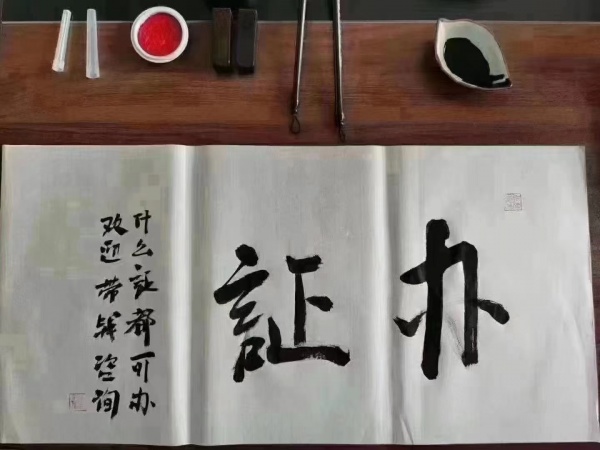 办証
什么証都可办
欢迎带钱咨询